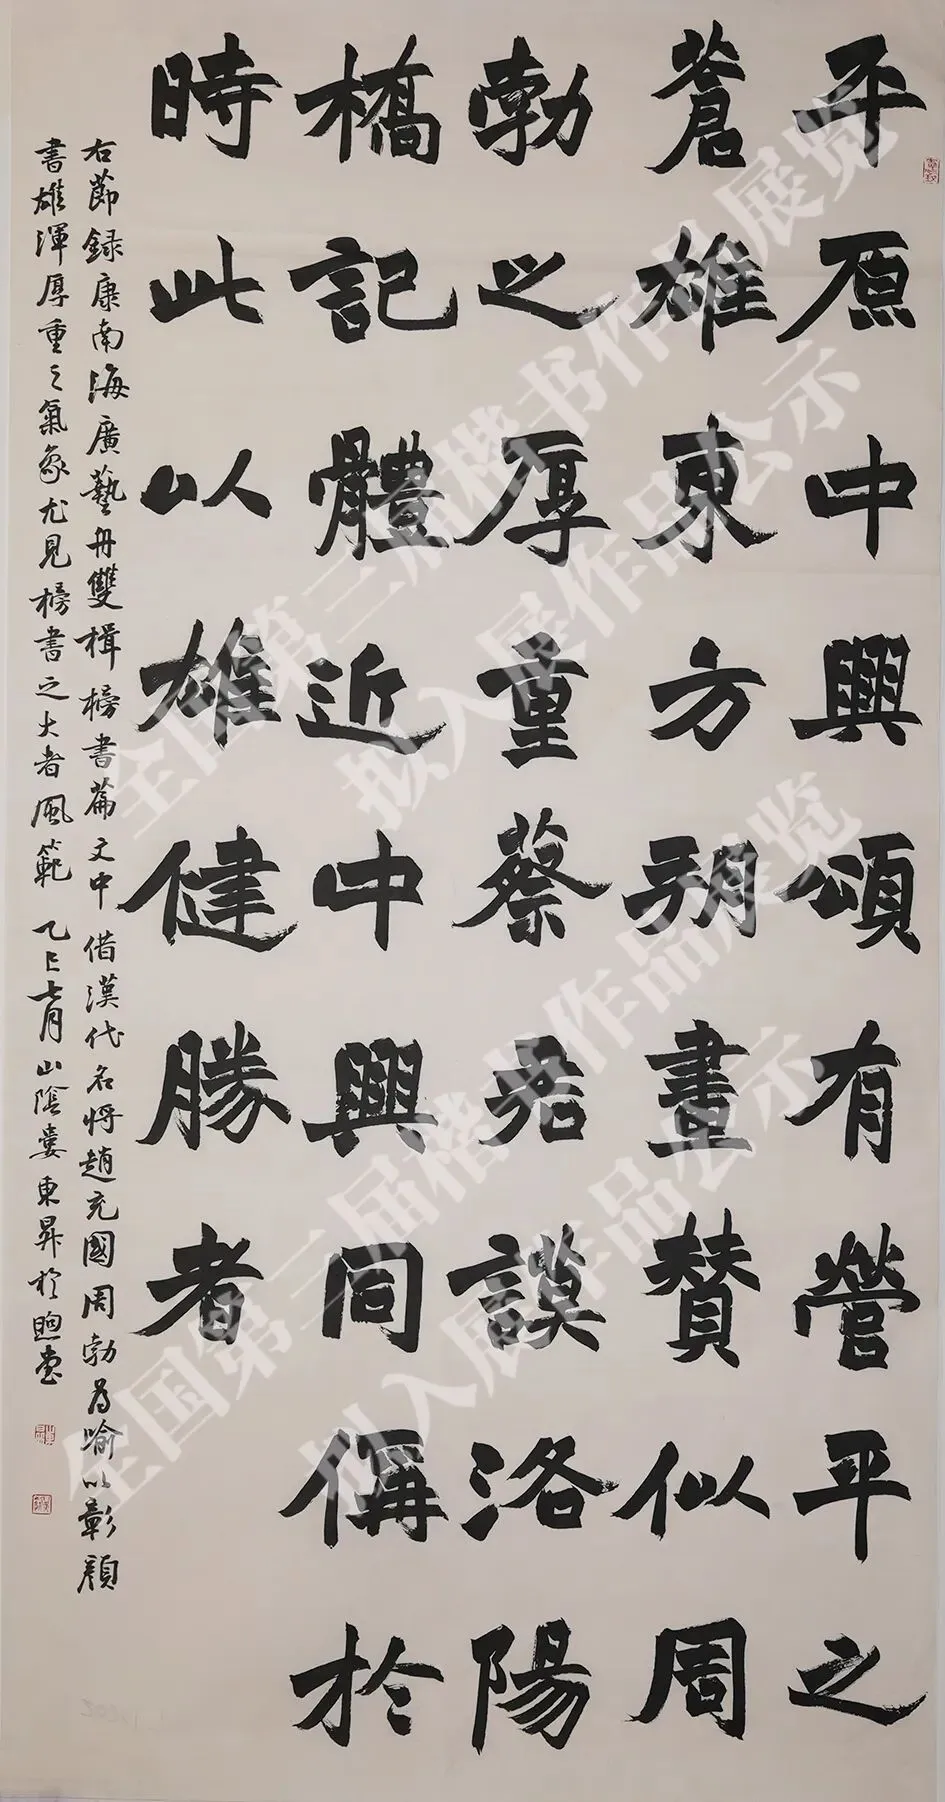 平原中興頌有營平之
蒼雄東方朔畫賛似周
勃之厚重蔡君謨洛陽
橋記體近中興同偁於
時此以雄健勝者
右節録康南海廣藝舟雙楫榜書篇文中借漢代名將趙充國周勃為喻以彰顔
書雄渾厚重之氣象尤見榜書之大者風範 乙巳七月山陰婁東昇於煦堂
全国第三届楷书作品展览
拟入展作品公示
全国第三届楷书作品展览
拟入展作品公示